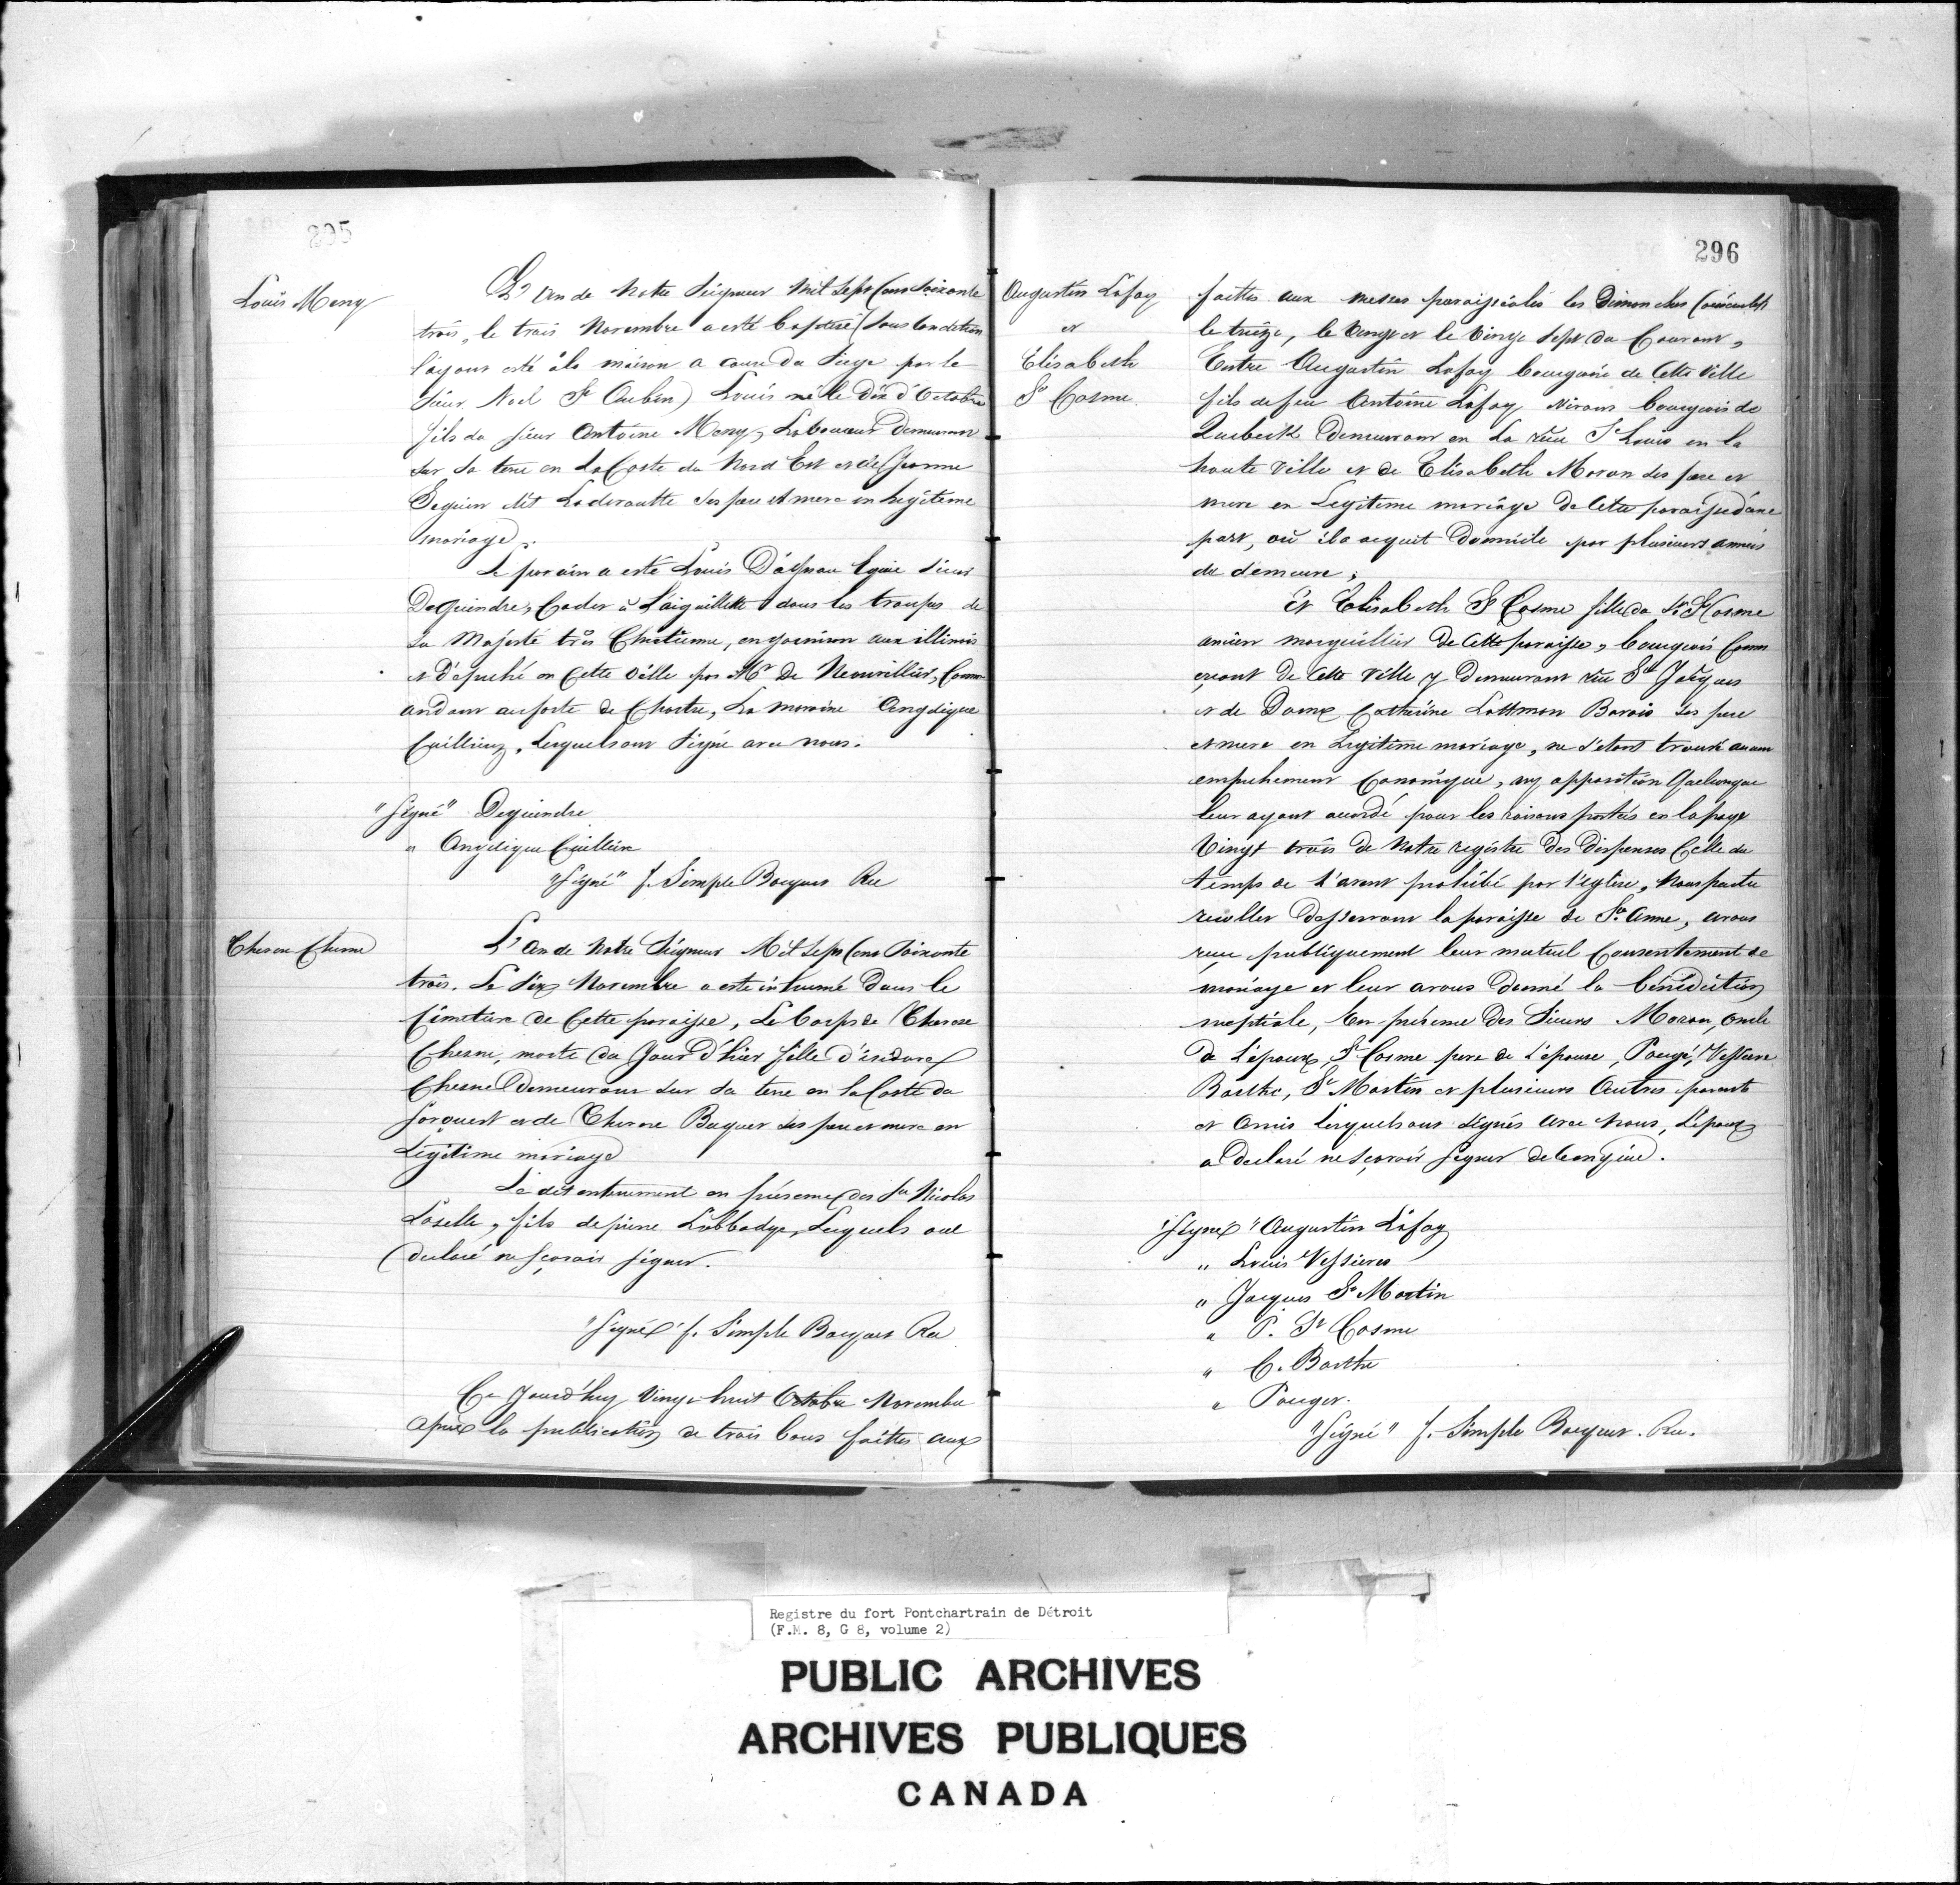 295
Louis Meny
L'An de Notre Seigneur Mil Sept Cens Soixante
trois, le trois Novembre a esté baptisé (sous condition
l'ayant esté à la maison a cause du Siege par le
sieur Noel St Aubin) Louis né le dix d'Octobre
fils du sieur Antoine Meny, Laboureur demeurant
sur sa terre en La Coste du Nord Est et de Jeanne
Seguin dit Laderoutte ses pere et mere en legitime
mariage.
Le parain a esté Louis Dagneau Equié sieur
Dequindre, Cadet à L'aiguillette dans les troupes de
Sa Majesté très Chretienne, en garnison aux illinois
et Députhé en Cette Ville par Mr de Neonvillier, Comm
andant au forte de Chartre, La maraine Angelique
Cuilliere, Lesquels ont Signé avec nous.
"Signé" Dequindre
" Angelique Cuilliere
"Signé" f. Simple Bocquet Rec
Therese Chesne
L'An de Notre Seigneur Mil Sept Cens Soixante
trois. Le Six Novembre a esté inhumé Dans le
Cimetiere de Cette paroisse, Le Corps de Therese
Chesne, morte du Jour d'hier fille d'isidore
Chesne Demeurant sur sa terre en la Coste du
Sorouest et de Therese Becquet ses pere et mere en
Legitime mariage
Le dit enterrement en présence des Srs Nicolas
Laselle, fils de pierre Labbadye, Lesquels ont
declaré ne sçavoir signer.
"Signé" f. Simple Bocquet Rec
Ce Jourd'huy Vingt-huit Octobre Novembre
Après la publication de trois bans faittes aux
296
Augustin Lafoy
et
Elisabeth
St Cosme
faittes aux messes paroissiales les Dimanches
le treize, le Vingt et le Vingt Sept du Courant,
Entre Augustin Lafoy bourgeois de Cette Ville
fils de feu Antoine Lafoy Vivant bourgeois de
Quebeck Demeurant en La rue St Louis en la
haute Ville et de Elisabeth Moran ses pere et
mere en Legitime mariage De Cette paroisse d'une
part, où il a acquit Domicile par plusieurs années
de demeure;
Et Elisabeth St Cosme fille du Sr St Kosme
ancien marguillier De Cette paroisse, bourgeois Comm
erçant De Cette Ville y Demeurant rue St Jacques
et de Dame Catherine Lottman Barois ses pere
et mere en Legitime mariage, ne s'étant trouvé aucun
empechement Canonique, ny opposition Quelconque
leur ayant accordé pour les raisons portées en la page
Vingt trois de Notre registre Des Dispenses Celle du
temps de l'avent prohibé par l'eglise, Nous pretre
recollet Desservant la paroisse de Ste Anne, avons
reçu publiquement leur mutuel Consentement de
mariage et leur avons donné la bénédiction
nuptiale, En présence Des Sieurs Moran, oncle
De l'époux, St Cosme pere de l'epouse, Pougé, Vessiere
Barthe, St Martin et plusieurs Autres parents
et Amis Lesquels ont signés avec Nous, L'épouse
a Declaré ne sçavoir signer de ce enquise.
"Signé" Augustin Lafoy
" Louis Vessieres
" Jacques St Martin
" P. St Cosme
" C. Barthe
" Pouget.
"Signé" f. Simple Bocquet. Rec.
Registre du fort Pontchartrain de Détroit
(F.M. 8, G 8, volume 2)
PUBLIC ARCHIVES
ARCHIVES PUBLIQUES
CANADA